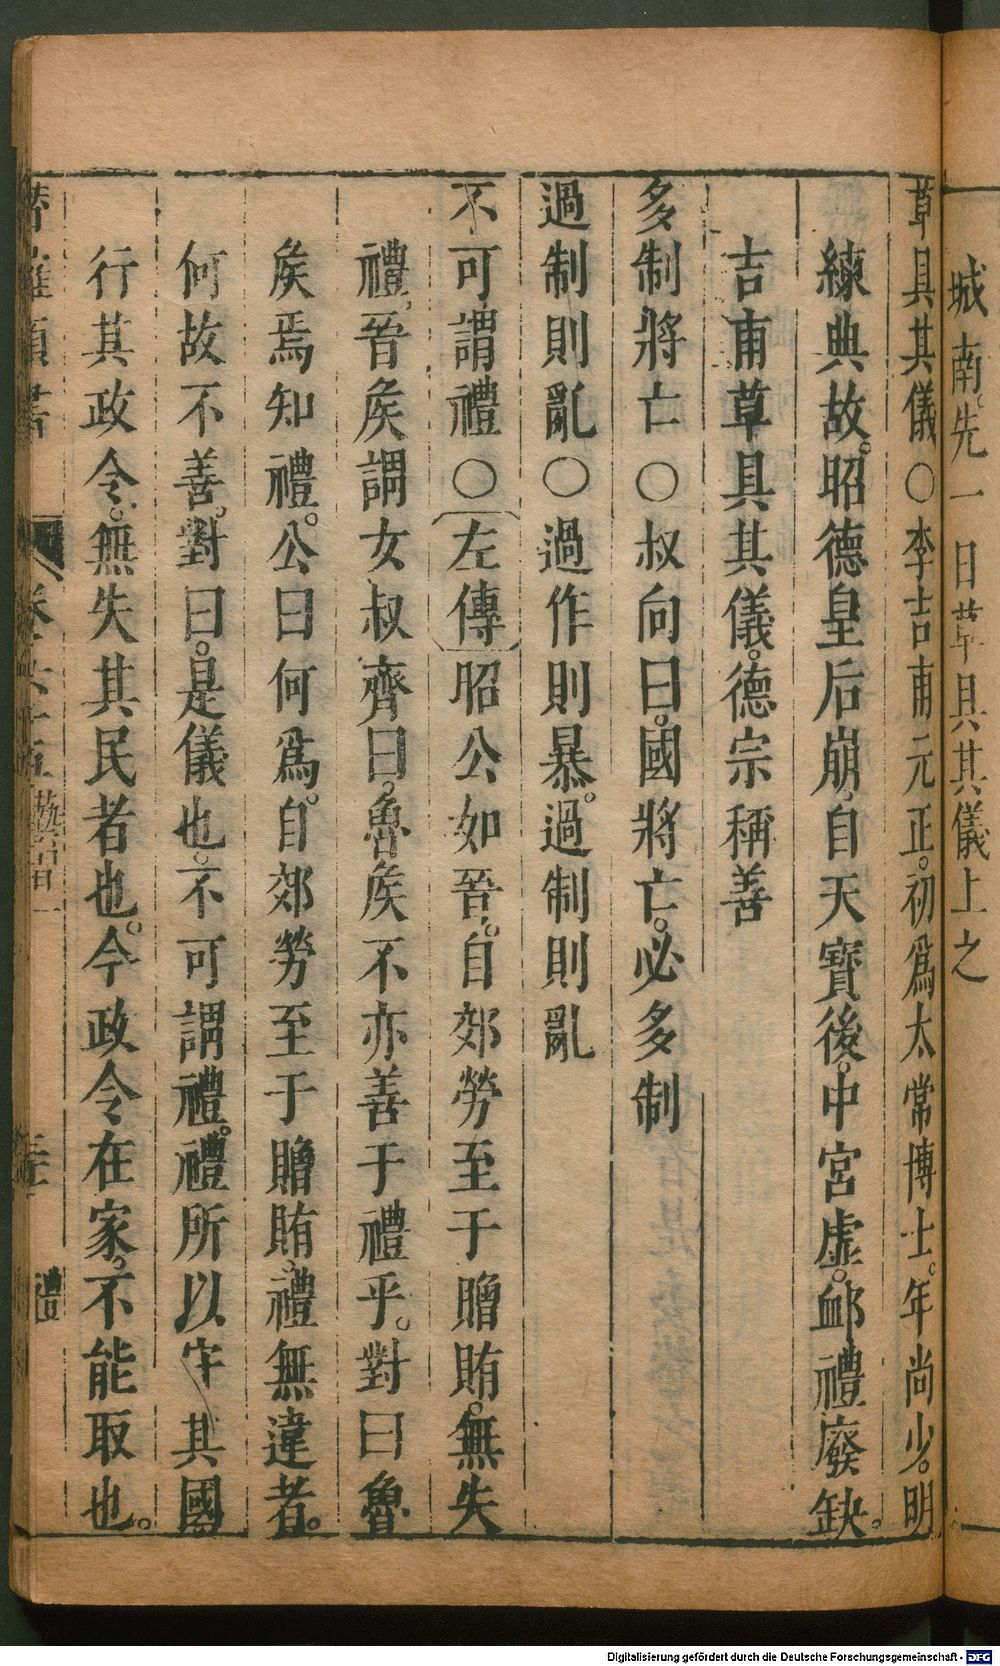 城南。先一日草具其儀上之
草具其儀○李吉甫元正。初爲太常博士。年尚少。明
練典故。昭德皇后崩。自天寶後。中宮虛。卹禮廢缺。
吉甫草具其儀。德宗稱善
多制將亡○叔向曰。國將亡。必多制
過制則亂○過作則暴。過制則亂
不可謂禮○左傳昭公如晉。自郊勞至于贈賄。無失
禮。晉矦謂女叔齊曰。魯矦不亦善于禮乎。對曰魯
矦焉知禮。公曰何爲。自郊勞至于贈賄。禮無違者。
何故不善。對曰。是儀也。不可謂禮。禮所以守其國
行其政令。無失其民者也。今政令在家。不能取也。
類書 禮
Digitalisierung gefördert durch die Deutsche Forschungsgemeinschaft - DFG